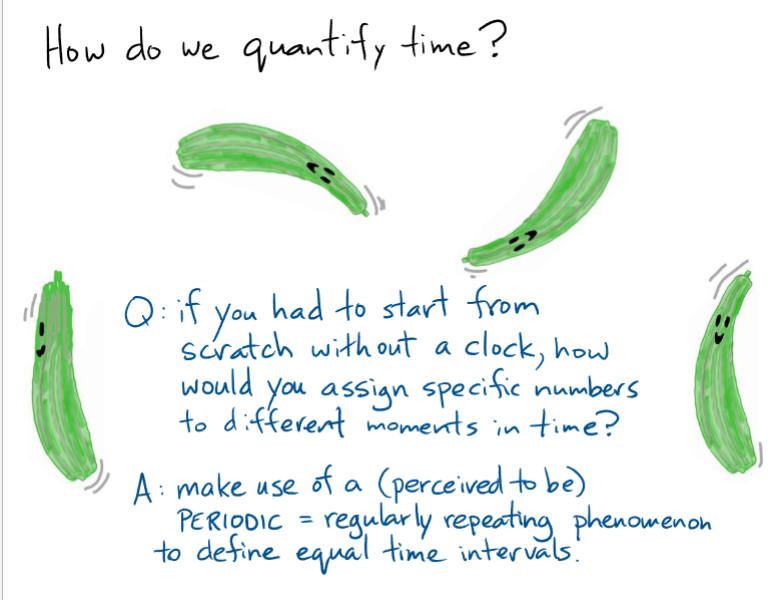 How do we quantify time?
Q: if you had to start from
scratch without a clock, how
would you assign specific numbers
to different moments in time?
A: make use of a (perceived to be)
PERIODIC = regularly repeating phenomenon
to define equal time intervals.